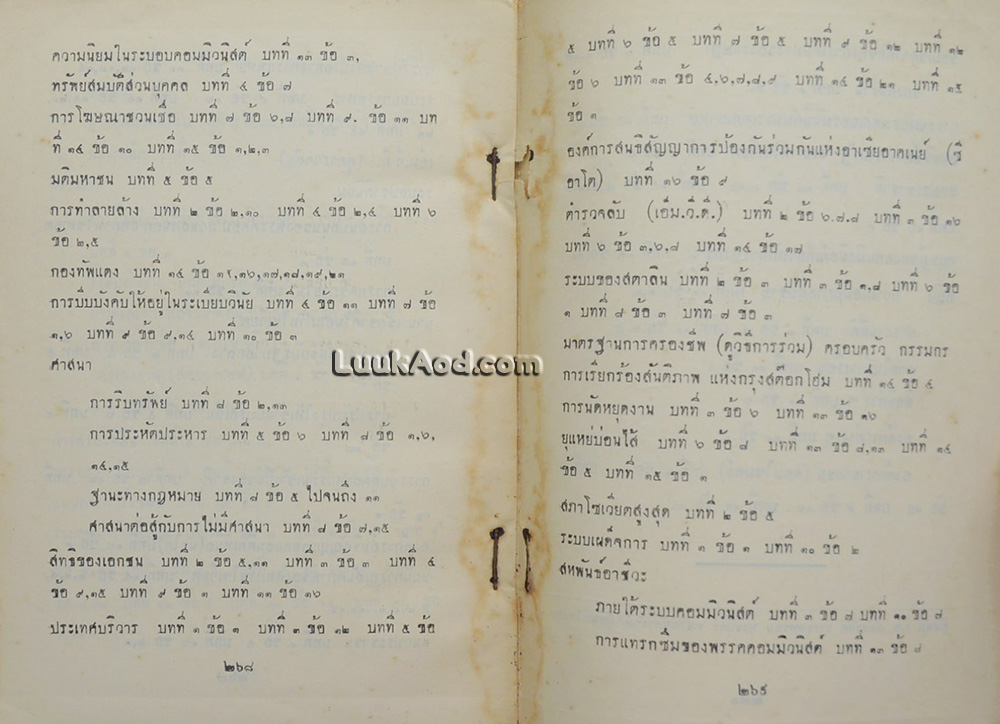 ความนิยมในระบอบคอมมิวนิสต์ บทที่ ๑๓ ข้อ ๓,
ทรัพย์สมบัติส่วนบุคคล บทที่ ๔ ข้อ ๗
การโฆษณาชวนเชื่อ บทที่ ๗ ข้อ ๖,๘ บทที่ ๙. ข้อ ๑๑ บท
ที่ ๑๔ ข้อ ๑๐ บทที่ ๑๕ ข้อ ๑,๒,๓
มติมหาชน บทที่ ๕ ข้อ ๕
การทำลายล้าง บทที่ ๒ ข้อ ๒,๑๐ บทที่ ๔ ข้อ ๒,๔ บทที่ ๖
ข้อ ๒,๕
กองทัพแดง บทที่ ๑๔ ข้อ ๑๕,๑๖,๑๗,๑๘,๑๙,๒๑
การบีบบังคับให้อยู่ในระเบียบวินัย บทที่ ๔ ข้อ ๑๑ บทที่ ๗ ข้อ
๑,๖ บทที่ ๙ ข้อ ๙,๑๔ บทที่ ๑๐ ข้อ ๓
ศาสนา
การริบทรัพย์ บทที่ ๘ ข้อ ๒,๑๓
การประหัตประหาร บทที่ ๕ ข้อ ๖ บทที่ ๘ ข้อ ๑,๖,
๑๔,๑๕
ฐานะทางกฎหมาย บทที่ ๘ ข้อ ๕ ไปจนถึง ๑๑
ศาสนาต่อสู้กับการไม่มีศาสนา บทที่ ๘ ข้อ ๗,๑๕
สิทธิของเอกชน บทที่ ๒ ข้อ ๕,๑๑ บทที่ ๓ ข้อ ๓ บทที่ ๔
ข้อ ๙,๑๕ บทที่ ๙ ข้อ ๑ บทที่ ๑๑ ข้อ ๑๖
ประเทศบริวาร บทที่ ๑ ข้อ ๑ บทที่ ๓ ข้อ ๑๒ บทที่ ๕ ข้อ
๒๖๘
๕ บทที่ ๖ ข้อ ๕ บทที่ ๗ ข้อ ๕ บทที่ ๙ ข้อ ๑๒ บทที่ ๑๒
ข้อ ๖ บทที่ ๑๓ ข้อ ๔,๖,๗,๘,๙ บทที่ ๑๔ ข้อ ๒๑ บทที่ ๑๕
ข้อ ๑
องค์การสนธิสัญญาการป้องกันร่วมกันแห่งอาเซียอาคเนย์ (ซี
อาโต) บทที่ ๑๖ ข้อ ๙
ตำรวจลับ (เอ็ม.วี.ดี.) บทที่ ๒ ข้อ ๖.๗.๘ บทที่ ๓ ข้อ ๑๖
บทที่ ๖ ข้อ ๓,๖,๘ บทที่ ๑๔ ข้อ ๑๗
ระบบของสตาลิน บทที่ ๒ ข้อ ๓ บทที่ ๓ ข้อ ๑,๘ บทที่ ๖ ข้อ
๑ บทที่ ๘ ข้อ ๓ บทที่ ๗ ข้อ ๓
มาตรฐานการครองชีพ (ดูวิธีการร่วม) ครอบครัว กรรมกร
การเรียกร้องสันติภาพ แห่งกรุงสต๊อกโฮ่ม บทที่ ๑๔ ข้อ ๔
การนัดหยุดงาน บทที่ ๓ ข้อ ๖ บทที่ ๑๓ ข้อ ๑๖
ยุแหย่บ่อนไส้ บทที่ ๖ ข้อ ๘ บทที่ ๑๓ ข้อ ๘,๑๓ บทที่ ๑๔
ข้อ ๕ บทที่ ๑๕ ข้อ ๑
สภาโซเวียตสูงสุด บทที่ ๒ ข้อ ๕
ระบบเผด็จการ บทที่ ๑ ข้อ ๑ บทที่ ๑๐ ข้อ ๒
สหพันธ์อาชีวะ
ภายใต้ระบบคอมมิวนิสต์ บทที่ ๓ ข้อ ๘ บทที่ ๑๐ ข้อ ๘
การแทรกซึมของพรรคคอมมิวนิสต์ บทที่ ๑๓ ข้อ ๘
๒๖๙
LuukAod.com